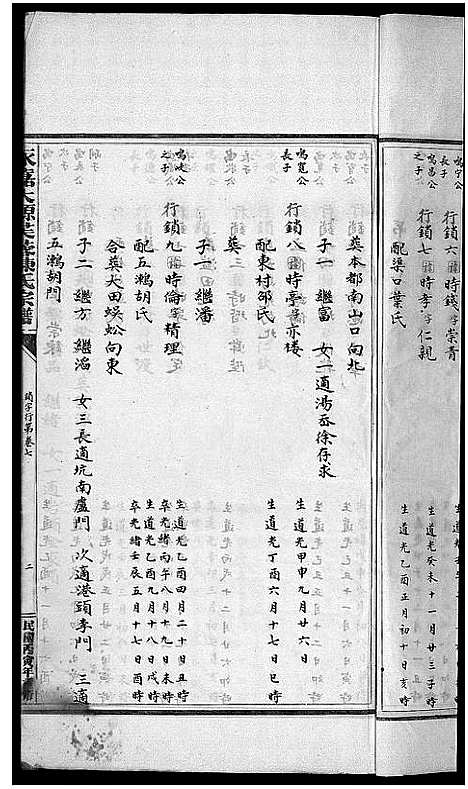 鳴宁公
之子
行鎖六 時錢 字崇青
鳴昌公
長子
行鎖七 時孝 字仁親
生道光癸未十一月廿三子時
配渠口葉氏
生道光乙酉正月初十日亥時
葵本都南山口向北
子一 繼富 女一適湯岙徐存求
鳴寬公
長子
行鎖八 時亭 亦楼
生道光甲申九月廿六日
配東村邵氏
生道光丁酉六月十七日巳時
葵
子一 繼潘
鳴岐公
之子
行鎖九 時倫 字精理
生道光乙酉四月二十日丑時
卒光緒丙午八月十九日未時
配五鶏胡氏
生道光乙酉九月十八日戌時
卒光緒壬辰五月十七日酉時
合葵大田蜈蚣向東
子二 繼方 繼滔 女三長適坑南盧門 次適港頭李門 三適
五鶏胡門
永嘉 源 陳氏宗譜
鎖字行第卷七
二
民國丙寅年